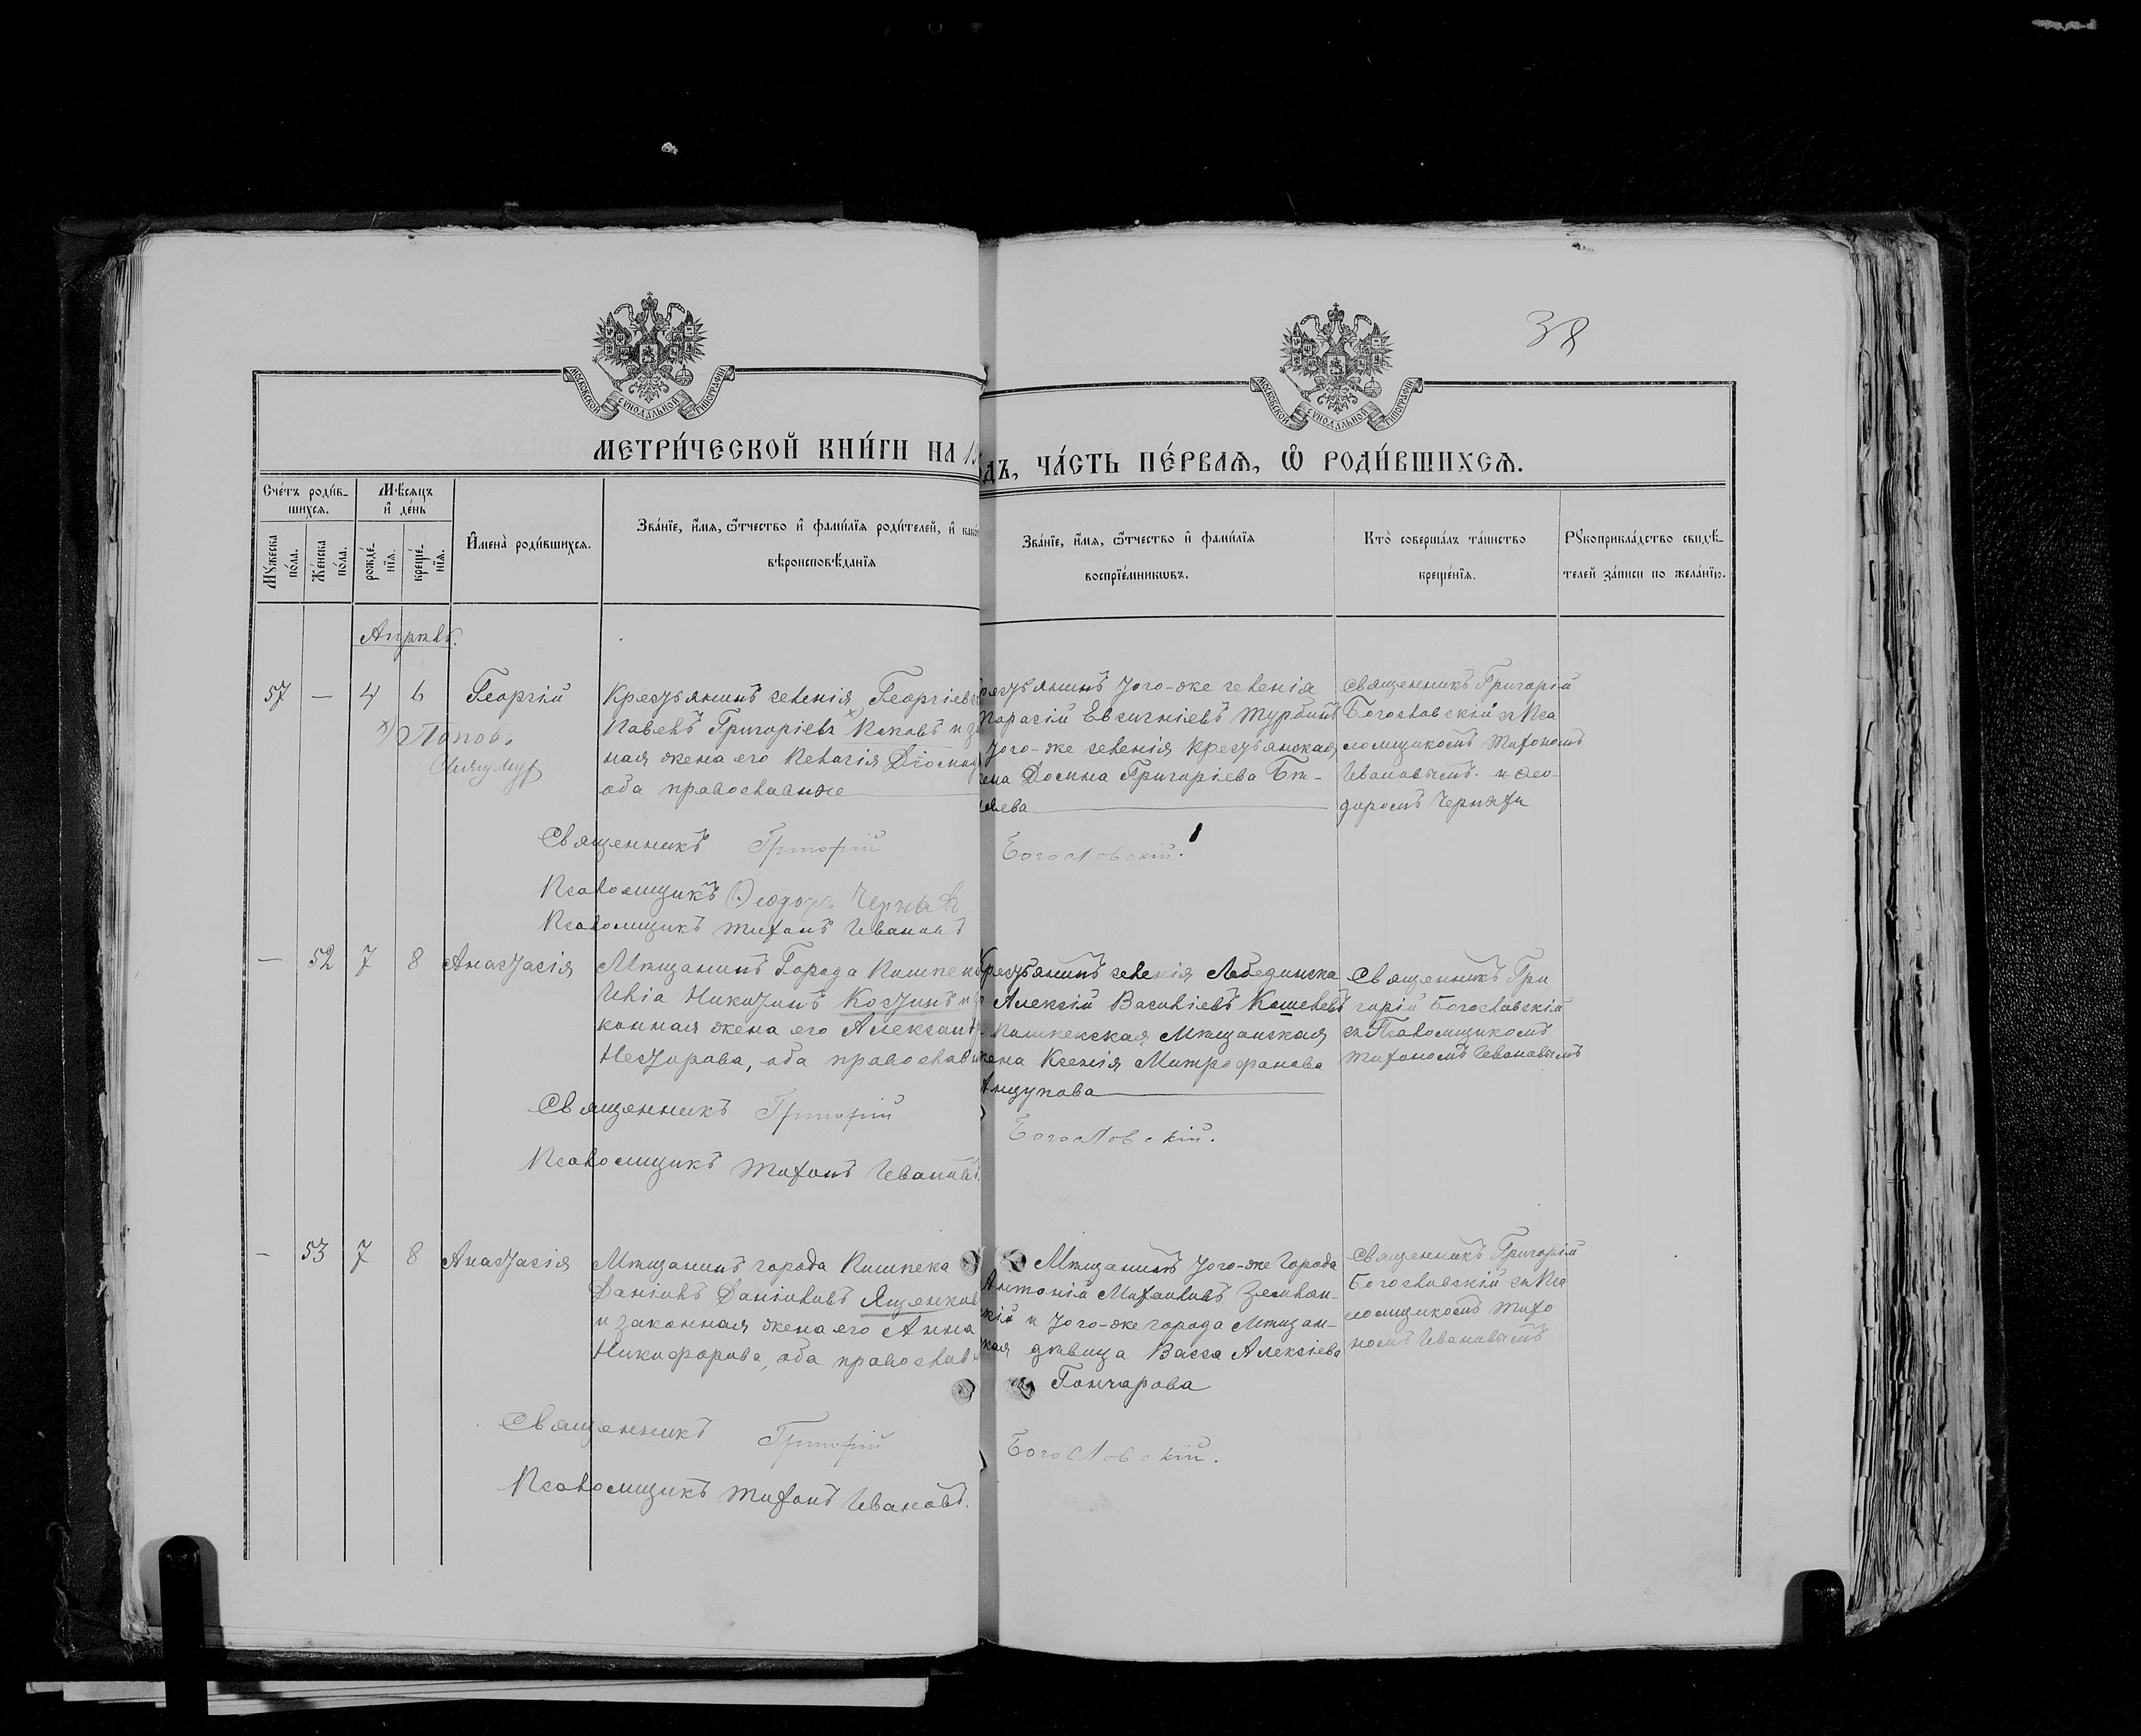 38
МОСКОВСКОЙ СѴНОДАЛЬНОЙ ТИПОГРАФІИ
МОСКОВСКОЙ СѴНОДАЛЬНОЙ ТИПОГРАФІИ
МЕТРИ́ЧЕСКОЙ КНИ́ГИ НА
ДЪ, ЧА́СТЬ ПЕ́РВАѦ, Ѽ РОДИ́ВШИХСѦ.
Сче́тъ роди́в-
шихсѧ.
Мѣсѧцъ
и҆ де́нь
Мꙋ́жеска
по́ла.
Же́нска
по́ла.
рожде́-
нїѧ.
креще́-
нїѧ.
И҆мена̀ роди́вшихсѧ.
Зва́нїе, и҆́мѧ, ѻ҆́тчество и҆ фами́лїѧ роди́телей, и҆ како́
вѣроисповѣ́данїѧ
Зва́нїе, и҆́мѧ, ѻ҆́тчество и҆ фами́лїѧ
воспрїе́мникѡвъ.
Кто̀ соверша́лъ та́инство
креще́нїѧ.
Рꙋкоприкла́дство свидѣ́-
телей за́писи по жела́нїю.
Апрѣль.
57 — 4 6 Георгій
Крестьянинъ селенія Георгіевс
Павелъ Григоріевъ Поповъ и за
ная жена его Пелагія Діомид
оба православные
х) Поповъ
Крестьянинъ того-же селенія
Тарасій Евсигніевъ Турбинъ
того-же селенія крестьянская
жена Домна Григоріева Бѣ-
ляева
Священникъ Григорій
Богословскій съ Пса
ломщикомъ Тихономъ
Ивановымъ и Ѳео-
доромъ Черн
Священникъ Григорій Богословскій.
Псаломщикъ Ѳеодоръ
Псаломщикъ Тихонъ Ивановъ
— 52 7 8 Анастасія
Мѣщанинъ Города Пишпека
Илія Никитинъ Костинъ и за
конная жена его Александр
Несторова, оба православн
Крестьянинъ селенія Лебединска
Алексій Василіевъ Кошелевъ
Пишпекская Мѣщанская
жена Ксенія Митрофанова
Анцупова
Священникъ Гри
горій Богословскій
съ Псаломщикомъ
Тихономъ Ивановымъ
Священникъ Григорій Богословскій.
Псаломщикъ Тихонъ Ивановъ.
— 53 7 8 Анастасія
Мѣщанинъ города Пишпека
Даніилъ Даніиловъ Ященков
и законная жена его Анна
Никифорова, оба православн
Мѣщанинъ того-же Города
Антоній Михаиловъ Землян-
скій и того-же города Мѣщан-
ская дѣвица Васса Алексіева
Гончарова
Священникъ Григорій
Богословскій съ Пса
ломщикомъ Тихо
номъ Ивановымъ
Священникъ Григорій Богословскій.
Псаломщикъ Тихонъ Ивановъ.